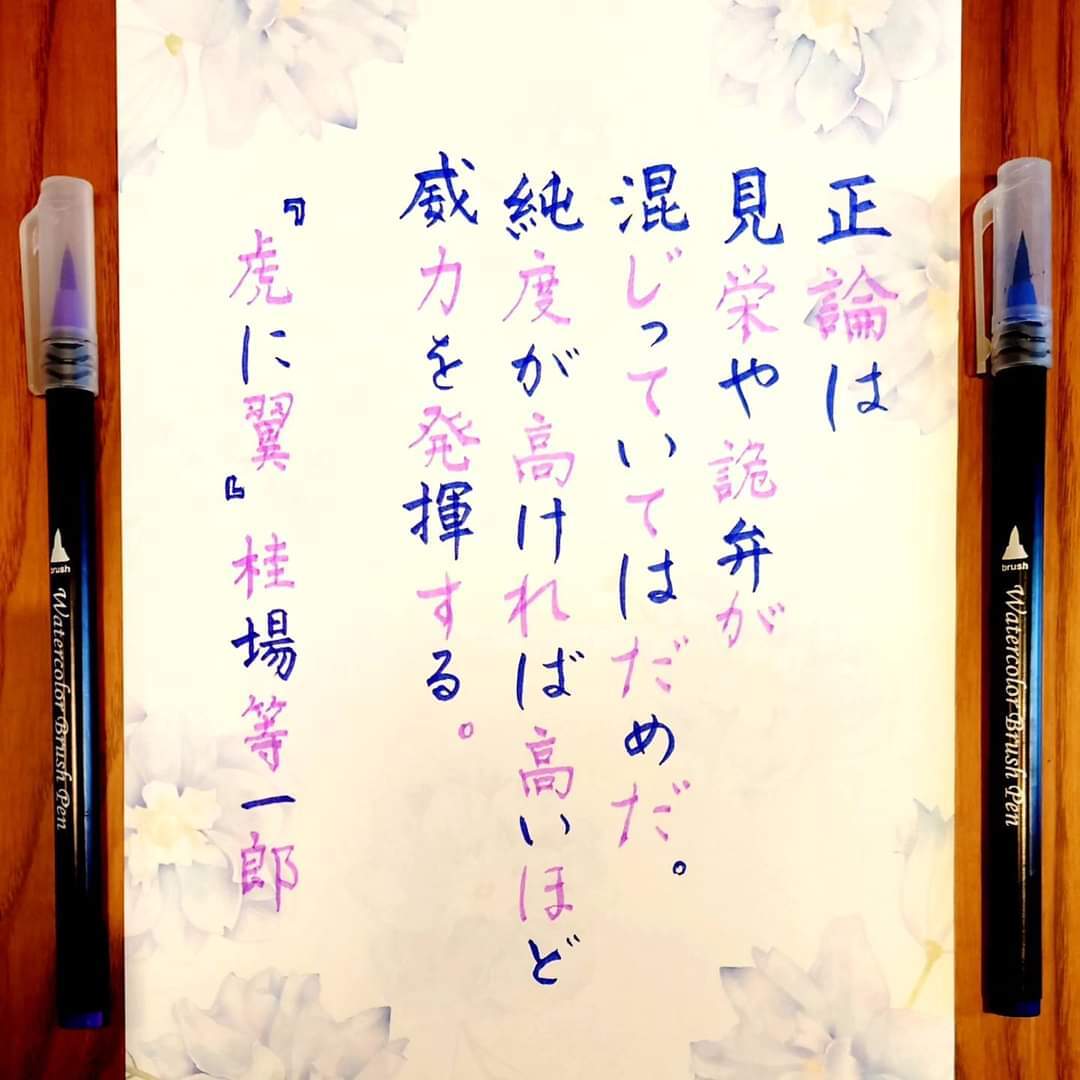 正論は
見栄や詭弁が
混じっていてはだめだ。
純度が高ければ高いほど
威力を発揮する。
『虎に翼』桂場等一郎
brush
Watercolor Brush Pen
brush
Watercolor Brush Pen